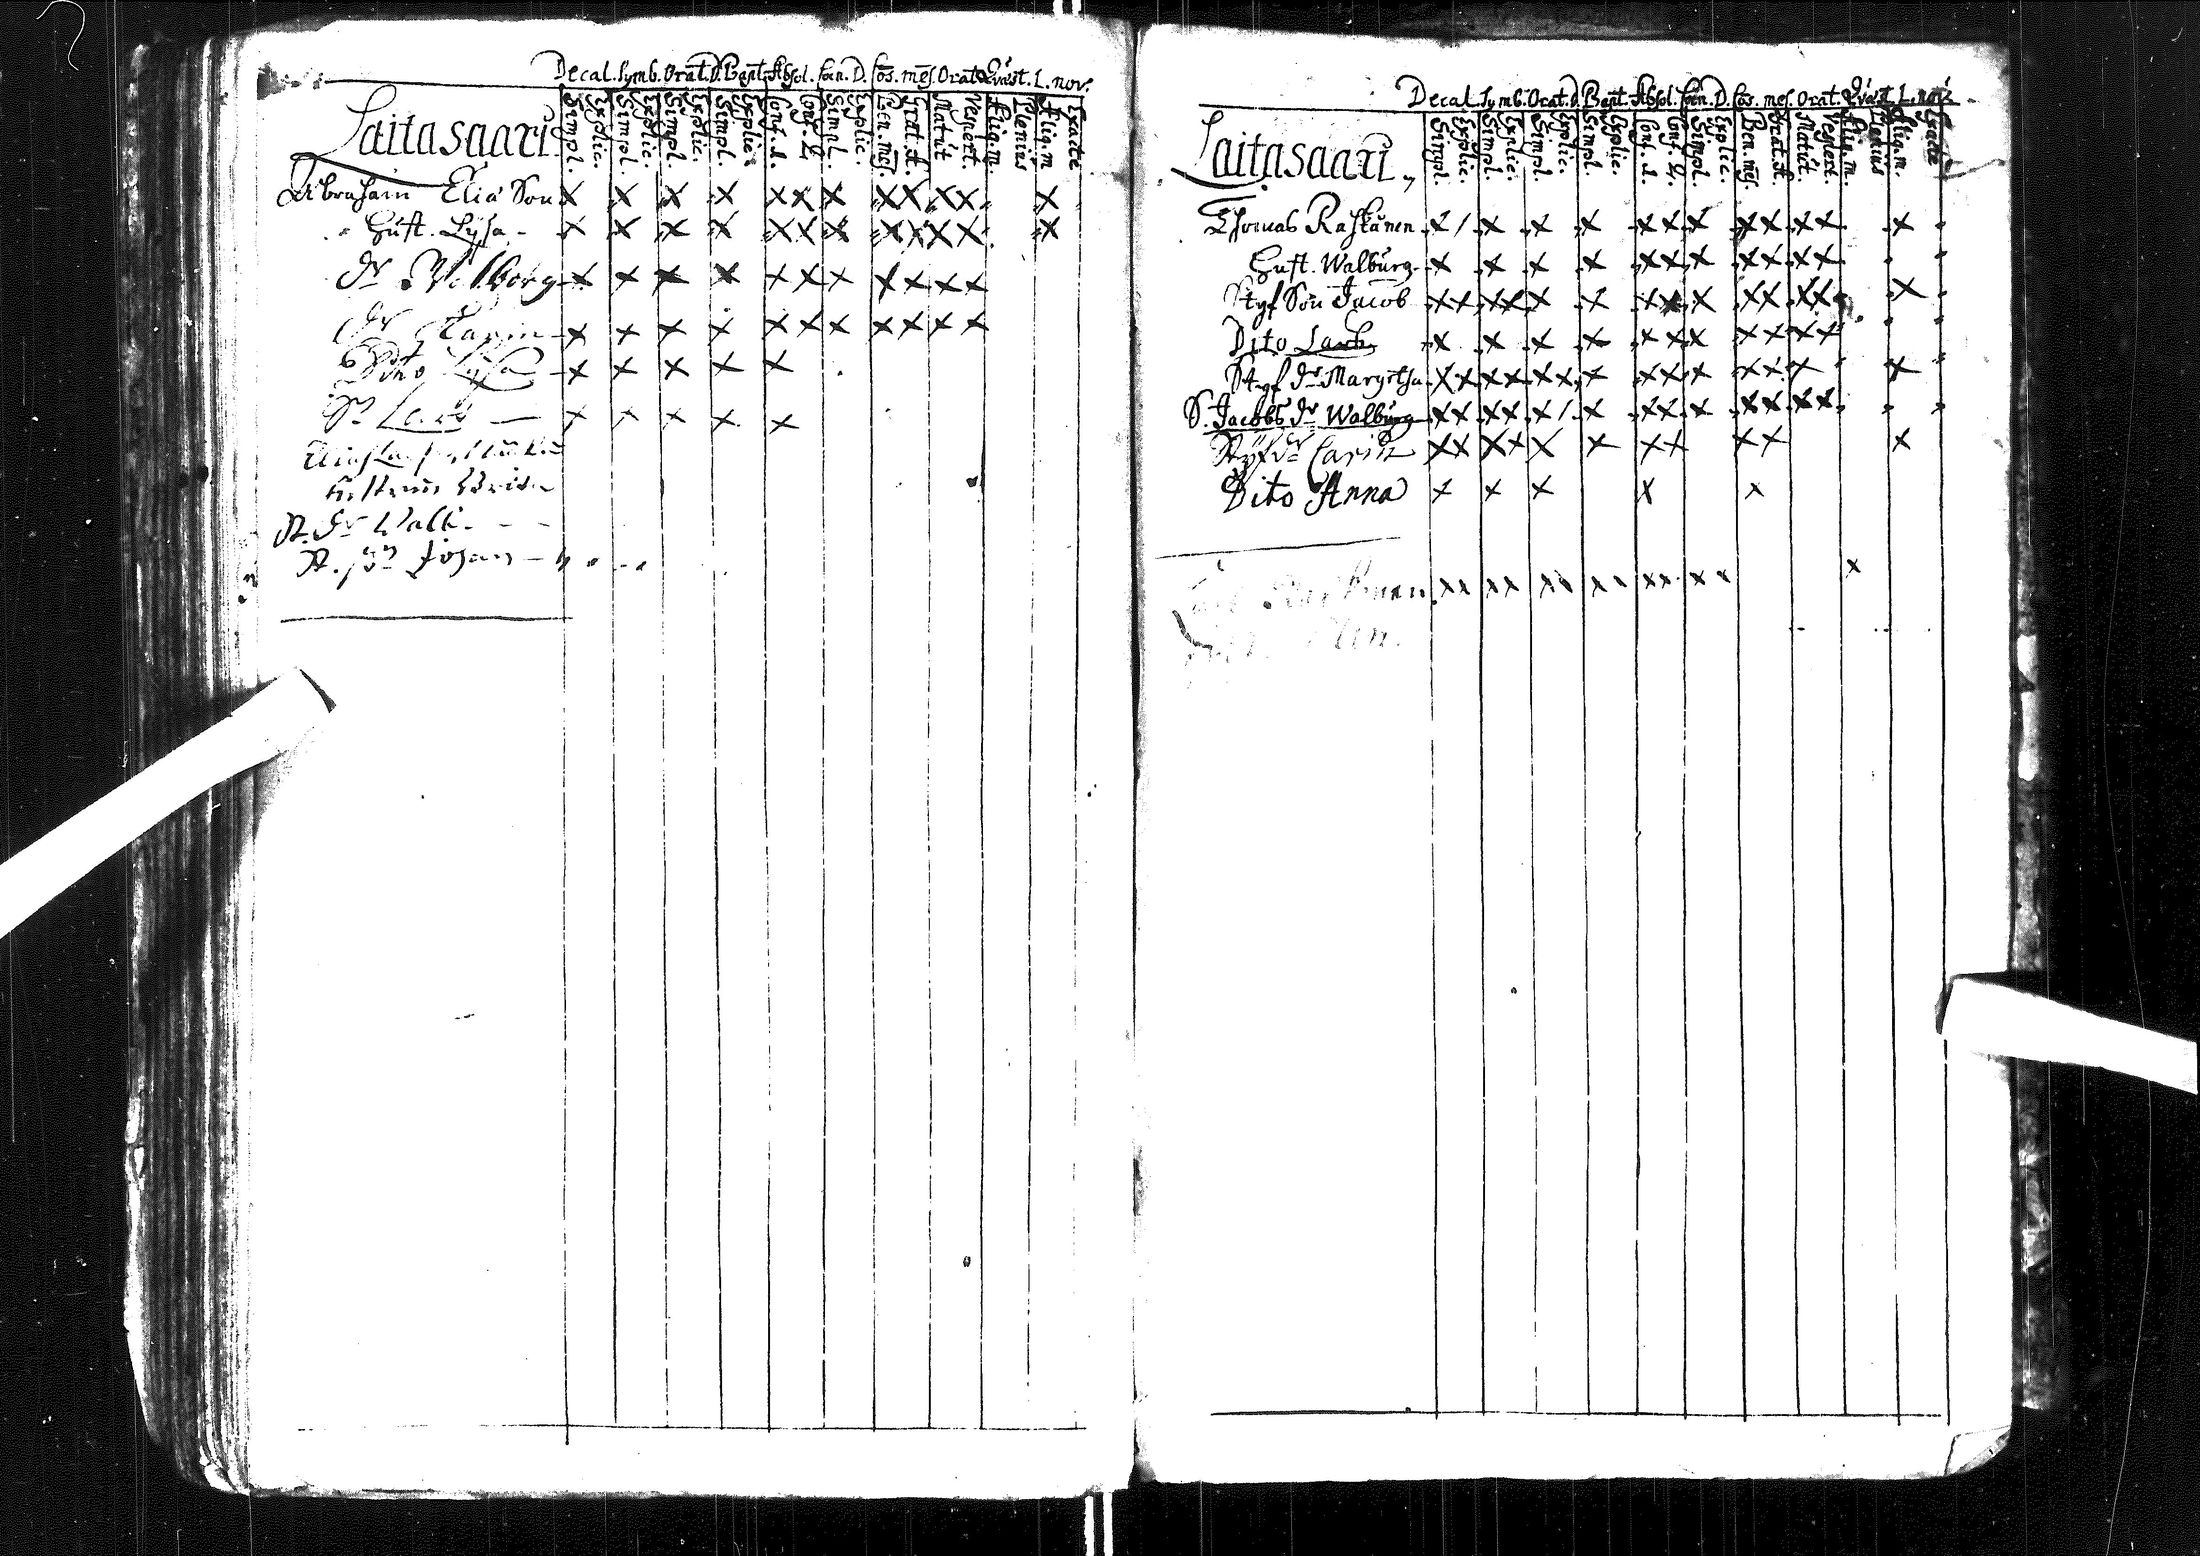 Decal. Symb. Orat. D. Bapt. Absol. Coen. D. Cōs. mēs. Orat. Qvæst. L. nov.
Simpl. Explic. Simpl. Explic. Simpl. Explic. Simpl. Explic. Conf. 1. Conf. 2. Simpl. Explic. Ben. mēs. Grat. A. Matut. Vespert. Aliq. m. Plenius Aliq. m. Exacte
Laitasaari.
Abraham Elia Son
Hust. Lysa
Dr Walborg
Dr Karin
Dito Lysa
Sn Lars
St. Dr Walb.
St. Sn Johan
Decal. Symb. Orat. D. Bapt. Absol. Coen. D. Cōs. mēs. Orat. Qvæst. L. nov.
Simpl. Explic. Simpl. Explic. Simpl. Explic. Simpl. Explic. Conf. 1. Conf. 2. Simpl. Explic. Ben. mēs. Grat. A. Matut. Vespert. Aliq. m. Plenius Aliq. m. Exacte
Laitasaari
Thomas Raskanen
Hust. Walburg
Styf Son Jacob
Dito Lars
Styf Dr Margetha
S. Jacobs Dr Walburg
Styf Dr Carin
Dito Anna